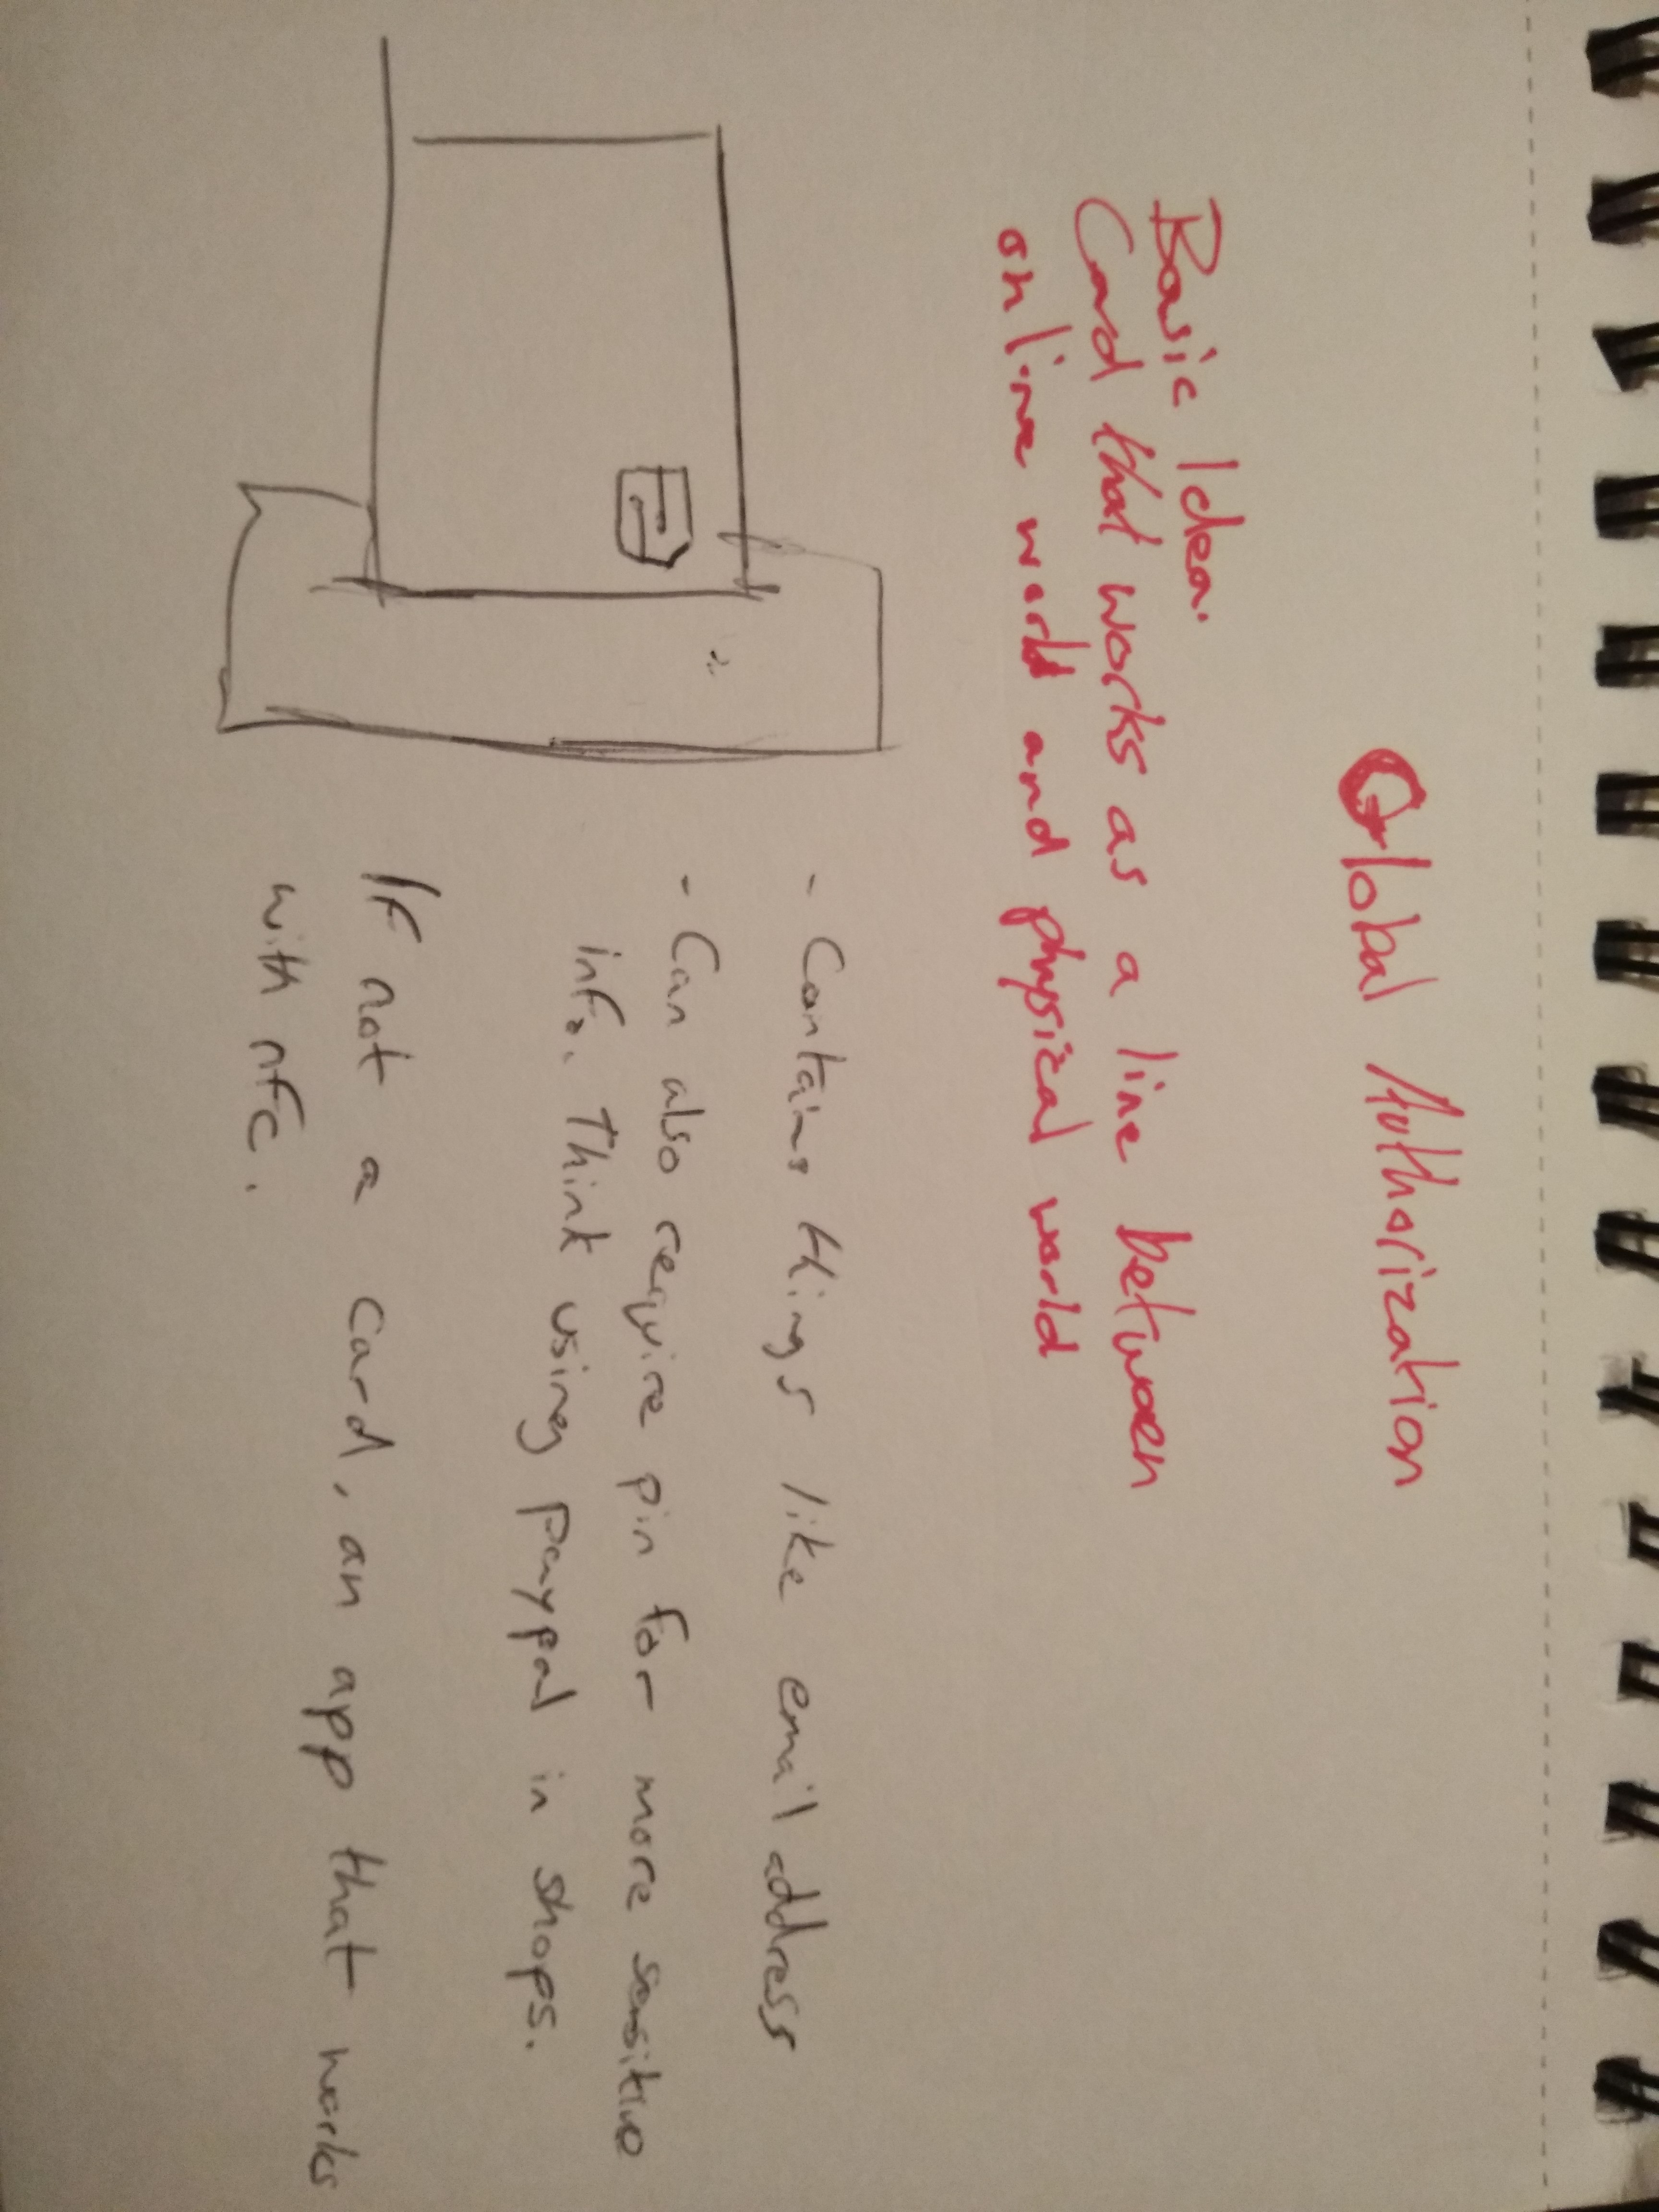 Global Authorization
Basic Idea:
Card that works as a line between
online world and physical world
- Contains things like email address
- Can also require pin for more sensitive
info. Think using paypal in shops.
If not a card, an app that works
with nfc.